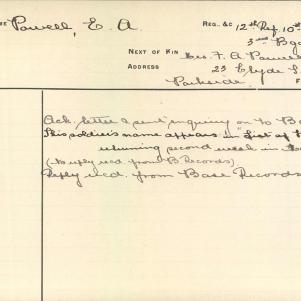 Powell, E. A
REG. &C 12th Rft. 10th
3rd Bga
NEXT OF KIN Mrs. F. A Powell
ADDRESS 23 Clyde S
Parkside.
Ack. letter & sent enquiry on to Ba
This soldier's name appears in List of
returning second week in
(to reply recd. from B Records)
Reply recd. from Base Records